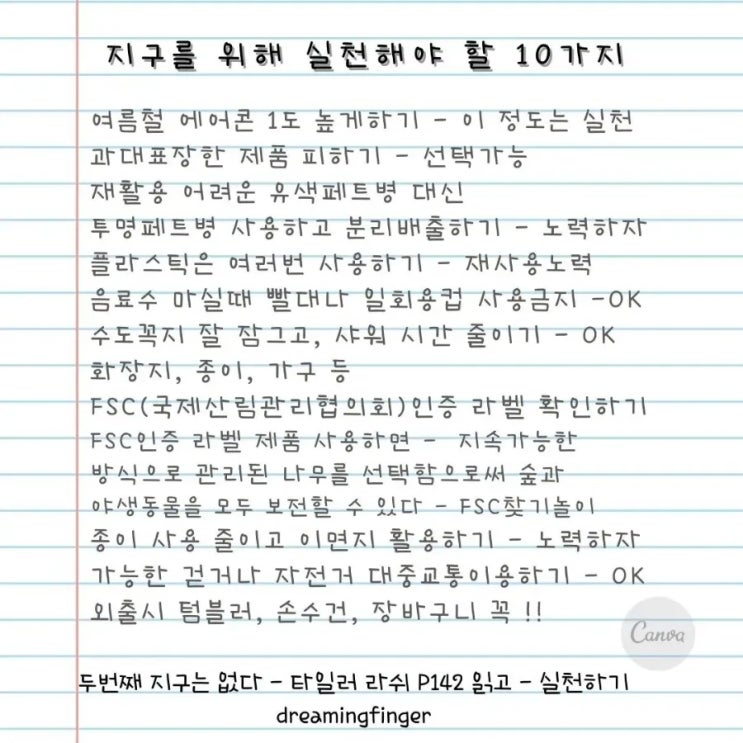 지구를 위해 실천해야 할 10가지
여름철 에어콘 1도 높게하기 - 이 정도는 실천
과대표장한 제품 피하기 - 선택가능
재활용 어려운 유색페트병 대신
투명페트병 사용하고 분리배출하기 - 노력하자
플라스틱은 여러번 사용하기 - 재사용노력
음료수 마실때 빨대나 일회용컵 사용금지 -OK
수도꼭지 잘 잠그고, 샤워 시간 줄이기 - OK
화장지, 종이, 가구 등
FSC(국제산림관리협의회)인증 라벨 확인하기
FSC인증 라벨 제품 사용하면 - 지속가능한
방식으로 관리된 나무를 선택함으로써 숲과
야생동물을 모두 보전할 수 있다 - FSC찾기놀이
종이 사용 줄이고 이면지 활용하기 - 노력하자
가능한 걷거나 자전거 대중교통이용하기 - OK
외출시 텀블러, 손수건, 장바구니 꼭 !!
Canva
두번째 지구는 없다 - 타일러 라쉬 P142 읽고 - 실천하기
dreamingfinger